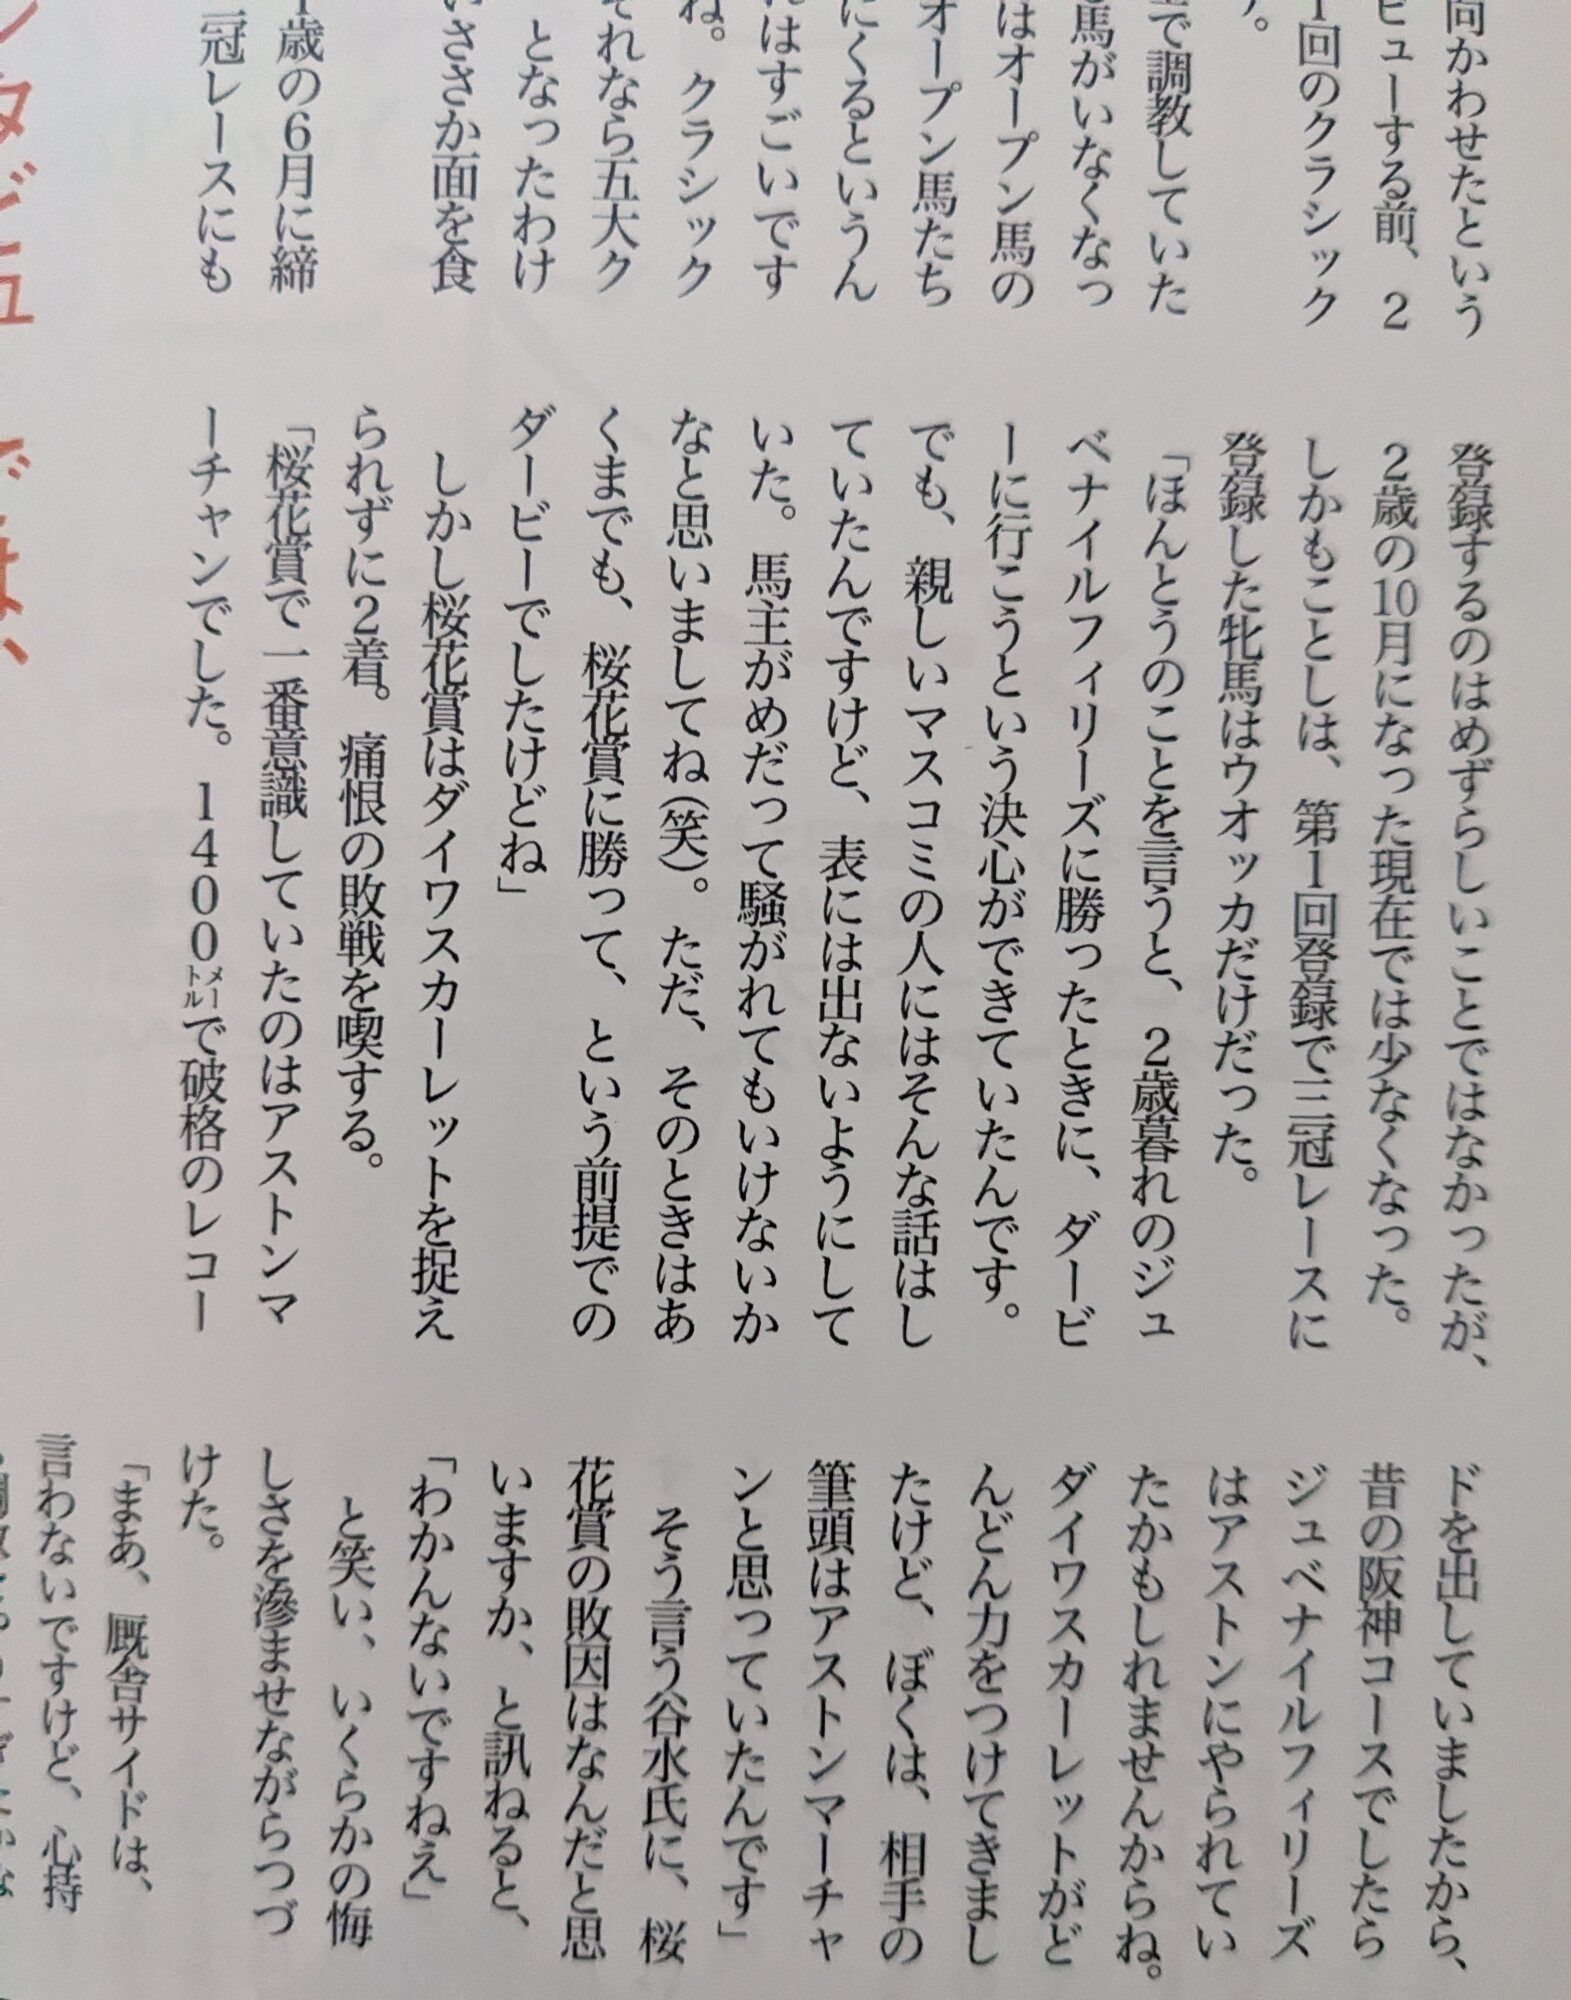 向かわせたという
ビューする前、2
1回のクラシック
で調教していた
馬がいなくなっ
はオープン馬の
オープン馬たち
にくるというん
れはすごいです
ね。クラシック
それなら五大ク
となったわけ
いささか面を食
1歳の6月に締
冠レースにも
登録するのはめずらしいことではなかったが、
2歳の10月になった現在では少なくなった。
しかもことしは、第1回登録で三冠レースに
登録した牝馬はウオッカだけだった。
「ほんとうのことを言うと、2歳暮れのジュ
ベナイルフィリーズに勝ったときに、ダービ
ーに行こうという決心ができていたんです。
でも、親しいマスコミの人にはそんな話はし
ていたんですけど、表には出ないようにして
いた。馬主がめだって騒がれてもいけないか
なと思いましてね(笑)。ただ、そのときはあ
くまでも、桜花賞に勝って、という前提での
ダービーでしたけどね」
しかし桜花賞はダイワスカーレットを捉え
られずに2着。痛恨の敗戦を喫する。
「桜花賞で一番意識していたのはアストンマ
ーチャンでした。1400メートルで破格のレコー
ドを出していましたから、
昔の阪神コースでしたら
ジュベナイルフィリーズ
はアストンにやられてい
たかもしれませんからね。
ダイワスカーレットがど
んどん力をつけてきまし
たけど、ぼくは、相手の
筆頭はアストンマーチャ
ンと思っていたんです」
そう言う谷水氏に、桜
花賞の敗因はなんだと思
いますか、と訊ねると、
「わかんないですねえ」
と笑い、いくらかの悔
しさを滲ませながらつづ
けた。
「まあ、厩舎サイドは、
言わないですけど、心持
ンタビューでは、